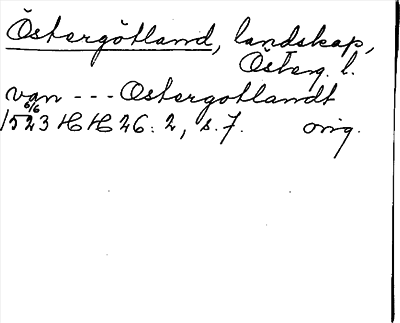 Östergötland, landskap,
Österg. l.
van --- Ostergotlandt
6/6
1523 HH 26:2, s. 7. orig.